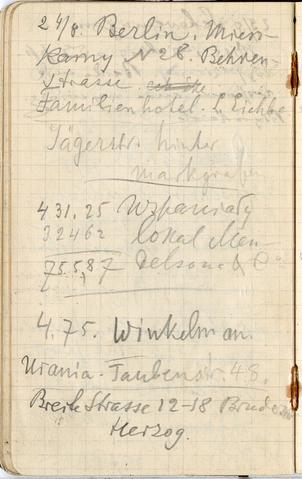 24/8. Berlin. Miesz-
kamy N 28. Behren
strasse.
Familienhotel.
Jägerstr. hinter
markgrafen
431.25 Wspaniały
324 62 lokal Men-
755,87 delsona & Co
4.75. Winkelman.
Urania. Taubenstr. 48.
Breite Strasse 12-18 Bruder
Herzog.